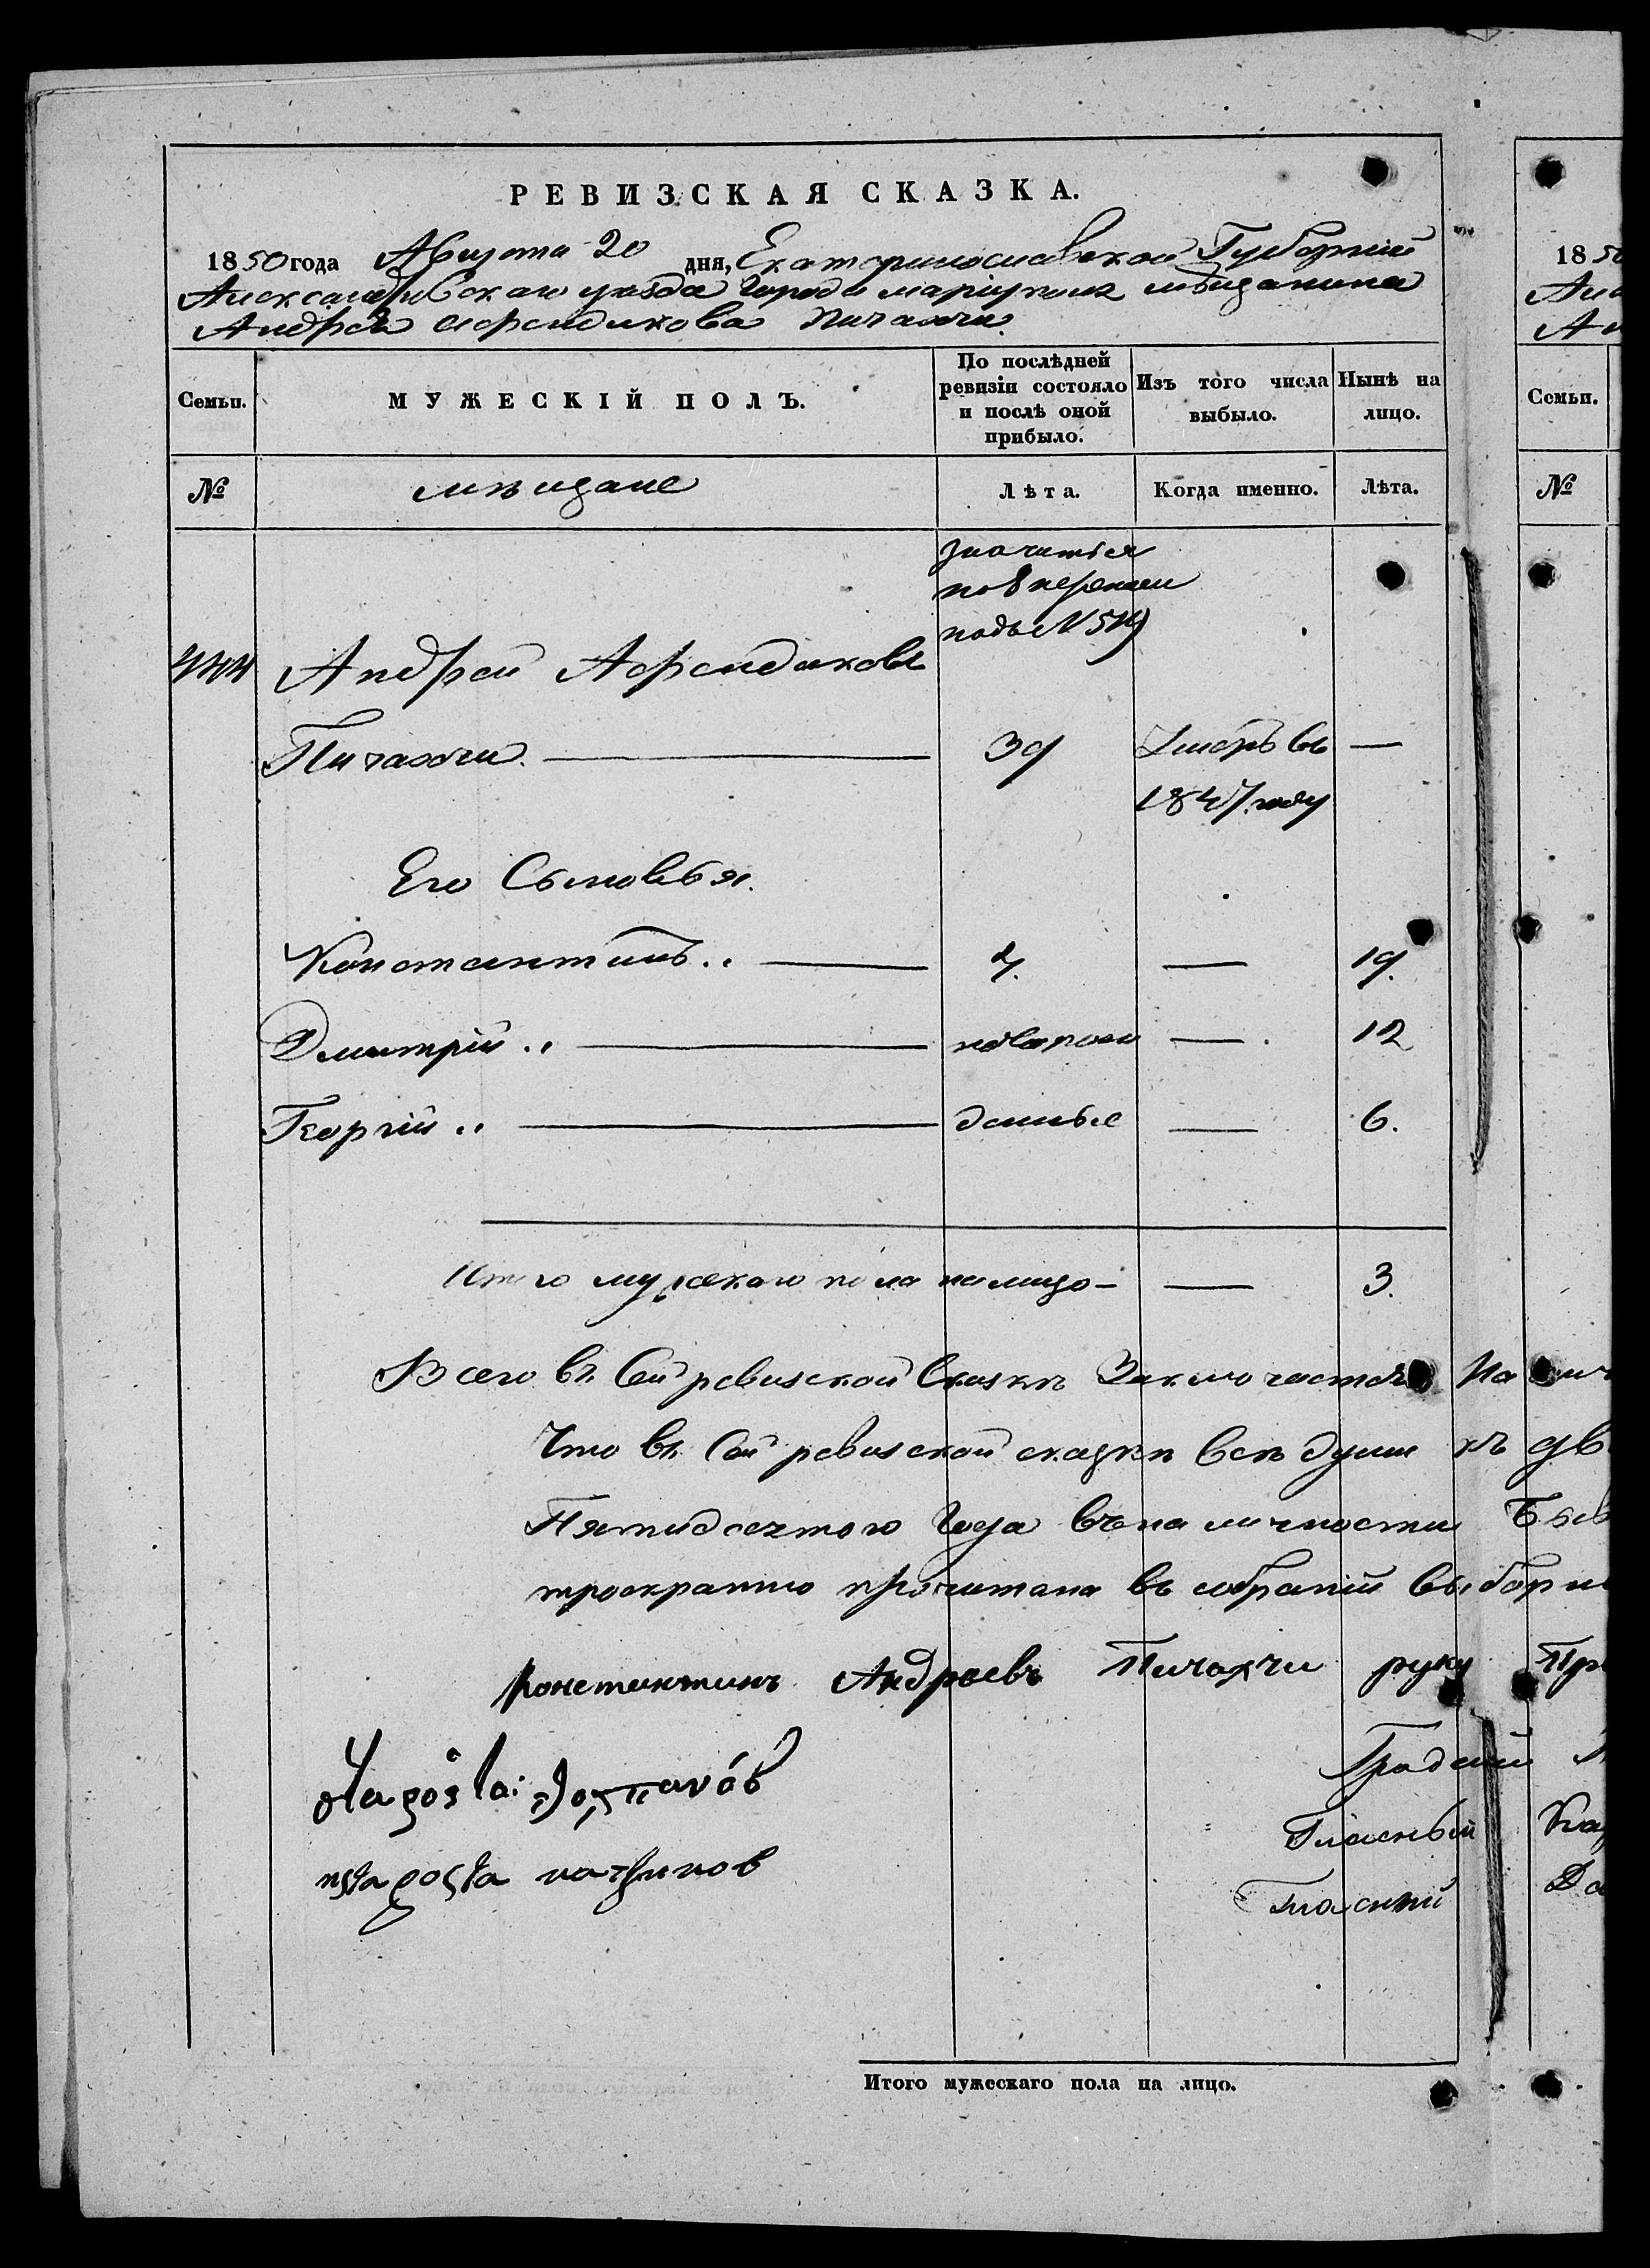 РЕВИЗСКАЯ СКАЗКА.
1850 года Августа 20 дня, Екатеринославской Губерніи
Александровскаго уезда города маріуполя мѣщанина
Андрея Афендикова Пичахчи.
Семьи.
МУЖЕСКІЙ ПОЛЪ.
По послѣдней ревизіи состояло и послѣ оной прибыло.
Изъ того числа выбыло.
Нынѣ на лицо.
№
мѣщане
Лѣта.
Когда именно.
Лѣта.
значиться
по 8 переписи
подъ №
444 Андрей Афендиковъ
Пичахчи. — 39 Умеръ въ —
1847 году
Его Сыновья.
Константинъ — 4. — 19.
Дмитрій — новорож — 12
Георгій — денные — 6.
Итого мужскаго пола на лицо — — 3.
Всего въ Сей ревизской Сказкѣ Заключается На
Что въ Сей ревизской сказкѣ всѣ души къ
Пятидесятого Года въ наличности
троекратно прочитана въ собраніи выборн
Константинъ Андреевъ Пичахчи руку Пр
Градскій
Гласный
Гласный
Итого мужескаго пола на лицо.
1850
Семьи.
№